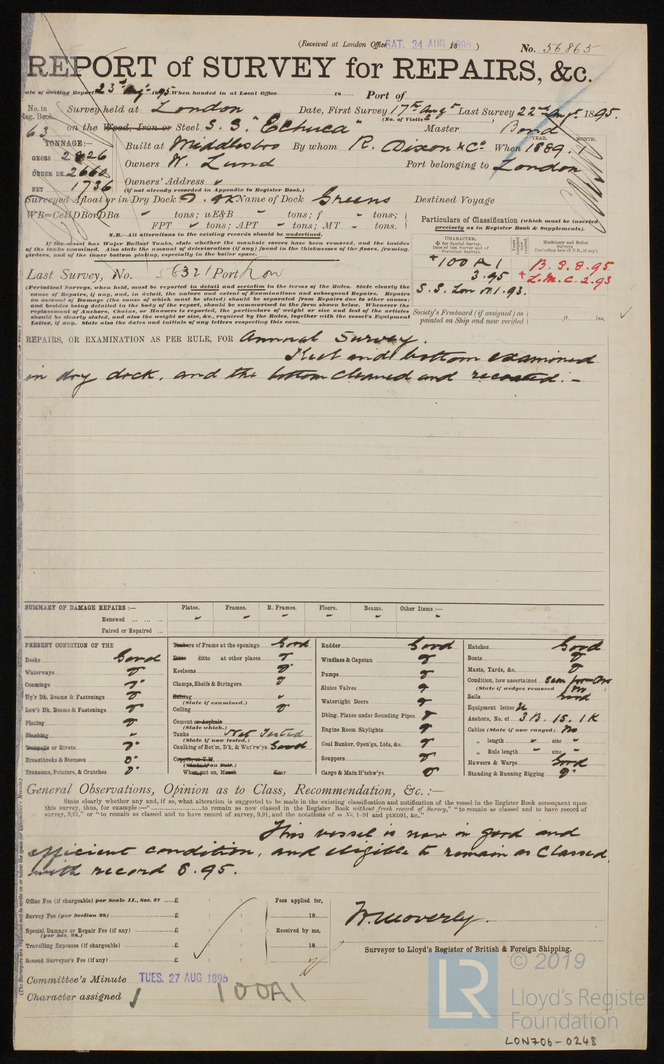 (Received at London Office SAT. 24 AUG 1895 18 ) No. 56865
REPORT of SURVEY for REPAIRS, &c.
Date of writing Report 23rd Augt 95 When handed in at Local Office 18 Port of
No. in Reg. Book. Survey held at London Date, First Survey 17th Augt Last Survey 22nd Augt 1895.
(No. of Visits 2
63 on the Wood, Iron or Steel S. S. "Echuca" Master Bond
TONNAGE:— Built at Middlesbro By whom R. Dixon & Co. When 1889. 1
YEAR. MONTH.
GROSS 2426 Owners W. Lund Port belonging to London
UNDER DK. 2660
NET 1736 Owners' Address "
(if not already recorded in Appendix to Register Book.)
Surveyed Afloat or in Dry Dock D. dk Name of Dock Greens Destined Voyage
WB=CellDBorDBa " tons; uE&B " tons; f " tons;
FPT " tons; APT " tons; MT " tons.
N.B.—All alterations in the existing records should be underlined.
If the vessel has Water Ballast Tanks, state whether the manhole covers have been removed, and the insides of the tanks examined. Also state the amount of deterioration (if any) found in the thicknesses of the floors, framing, girders, and of the inner bottom plating, especially in the boiler space.
Particulars of Classification (which must be inserted precisely as in Register Book & Supplements).
CHARACTER.
Machinery and Boiler Surveys
+100 A 1
3.95
S. S. Lon No 1. 93.
B. S. 8. 95
+L.M.C. 2.93
Last Survey, No. 5632 Port Lon
(Periodical Surveys, when held, must be reported in detail and seriatim in the terms of the Rules. State clearly the cause of Repairs, if any, and, in detail, the nature and extent of Examinations and subsequent Repairs. Repairs on account of Damage (the cause of which must be stated) should be separated from Repairs due to other causes; and besides being detailed in the body of the report, should be summarised in the form shown below. Whenever the replacement of Anchors, Chains, or Hawsers is reported, the particulars of weight or size and test of the articles should be clearly stated, and also the weight or size, &c., required by the Rules, together with the vessel's Equipment Letter, if any. State also the dates and initials of any letters respecting this case.
Society's Freeboard (if assigned) as painted on Ship and now verified " ins.
REPAIRS, OR EXAMINATION AS PER RULE, FOR Annual Survey.
Keel and bottom examined
in dry dock, and the bottom cleaned and recoated. –
SUMMARY OF DAMAGE REPAIRS:— Plates. Frames. R. Frames. Floors. Beams. Other Items:—
Renewed
Paired or Repaired
PRESENT CONDITION OF THE
Decks Good
Waterways
Coamings
Up'r Dk. Beams & Fastenings
Low'r Dk. Beams & Fastenings
Plating
Sheathing
Treenails or Rivets
Breasthooks & Stemson
Transoms, Pointers, & Crutches
Timbers of Frame at the openings Good
Ditto ditto at other places
Keelsons
Clamps, Shelfs & Stringers
Salting
(State if examined.)
Ceiling
Cement or Asphalt
(State which.)
Tanks Not Tested
(State if now tested.)
Caulking of Bot'm, D'k, & Wat'rw'ys Good
Copper, or Y.M.
When put on, Month Year
Rudder Good
Windlass & Capstan
Pumps
Sluice Valves
Watertight Doors
Dblng. Plates under Sounding Pipes
Engine Room Skylights
Coal Bunker, Open'gs, Lids, &c.
Scuppers
Cargo & Main H'tchw'ys
Hatches Good
Boats
Masts, Yards, &c.
Condition, how ascertained seen from Dk
(State if wedges removed) No
Sails Good
Equipment letter U
Anchors, No. of 3 B. 1S. 1K
Cables (State if now ranged) No
„ length " size "
„ Rule length " size "
Hawsers & Warps Good
Standing & Running Rigging
General Observations, Opinion as to Class, Recommendation, &c. :—
State clearly whether any and, if so, what alteration is suggested to be made in the existing classification and notification of the vessel in the Register Book consequent upon this survey, thus, for example:—"..........to remain as now classed in the Register Book without fresh record of Survey," "to remain as classed and to have record of survey, 9,91," or "to remain as classed and to have record of survey, 9,91, and the notations of ss No. 1-91 and ptND91, &c."
This vessel is now in good and
efficient condition, and eligible to remain as Classed
with record 8.95.
Office Fee (if chargeable) per Scale II., Sec. 27 £
Survey Fee (per Section 28) £
Special Damage or Repair Fee (if any) £
(per Sec. 28.)
Travelling Expenses (if chargeable) £
Second Surveyor's Fee (if any) £
Fees applied for,
18
Received by me,
18
W. Moverly.
Surveyor to Lloyd's Register of British & Foreign Shipping.
Committee's Minute TUES. 27 AUG 1895
Character assigned 100A1
© 2019
LR
Lloyd's Register
Foundation
LON706-0248